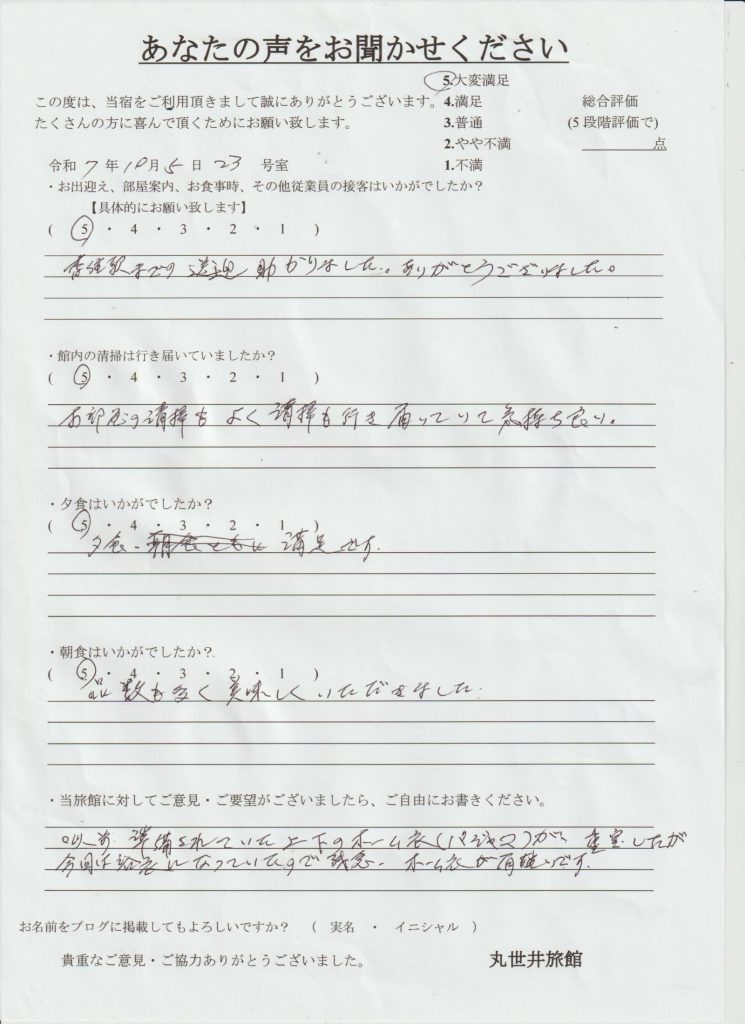 あなたの声をお聞かせください
5.大変満足
この度は、当宿をご利用頂きまして誠にありがとうございます。4.満足 総合評価
たくさんの方に喜んで頂くためにお願い致します。 3.普通 (5段階評価で)
2.やや不満 点
令和7年10月5日 23 号室 1.不満
・お出迎え、部屋案内、お食事時、その他従業員の接客はいかがでしたか？
【具体的にお願い致します】
( 5 ・ 4 ・ 3 ・ 2 ・ 1 )
駅までの送迎助かりました。ありがとうございました。
・館内の清掃は行き届いていましたか？
( 5 ・ 4 ・ 3 ・ 2 ・ 1 )
お部屋の清掃もよく清掃も行き届いていて気持ち良い。
・夕食はいかがでしたか？
( 5 ・ 4 ・ 3 ・ 2 ・ 1 )
夕食・朝食ともに満足です。
・朝食はいかがでしたか？
( 5 ・ 4 ・ 3 ・ 2 ・ 1 )
品数も多く美味しくいただきました。
・当旅館に対してご意見・ご要望がございましたら、ご自由にお書きください。
以前準備されていた上下のホーム衣(パジャマ)が、重宝したが
今回は浴衣になっていたので残念。ホーム衣が有難いです。
お名前をブログに掲載してもよろしいですか？ ( 実名 ・ イニシャル )
貴重なご意見・ご協力ありがとうございました。 丸世井旅館